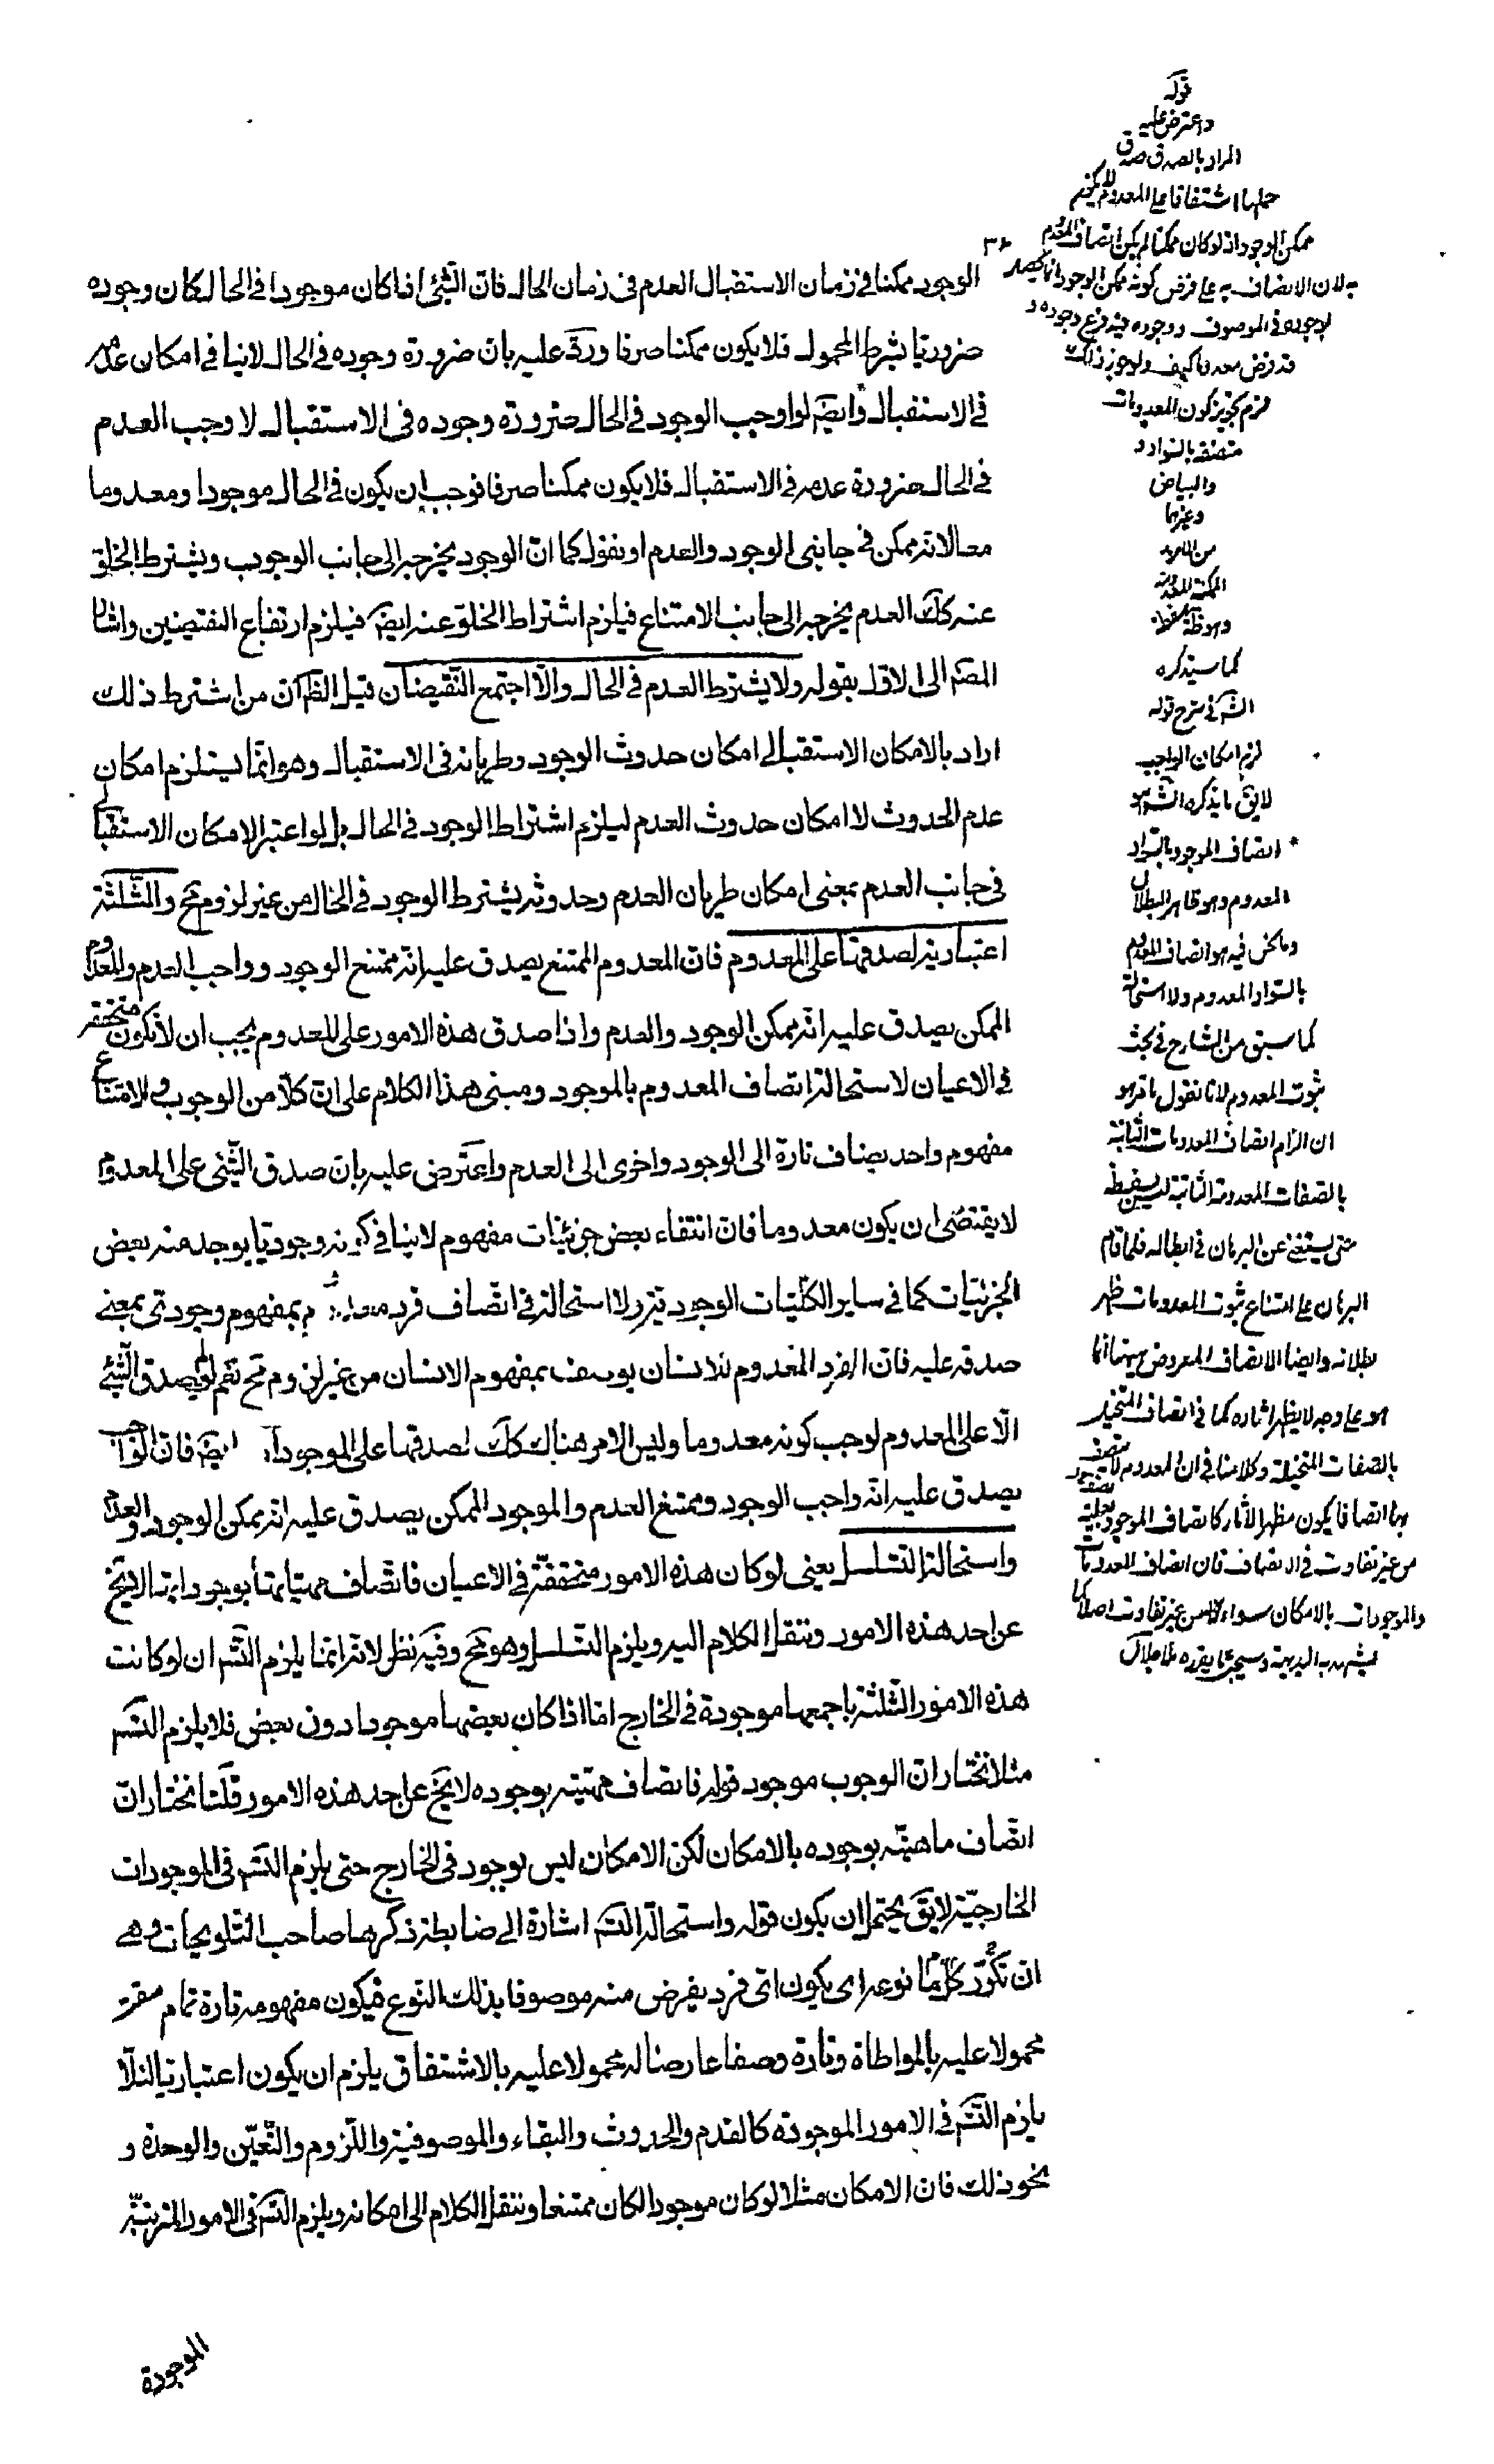 الوجود ممكنا فى زمان الاستقبال العدم فى زمان الحال فان الشئ اذا كان موجودا فى الحال لكان وجوده
ضروريا بشرط المحمول فلا يكون ممكنا صرفا وردّ عليه بان ضرورة وجوده فى الحال لا ينافى امكان عدمه
فى الاستقبال وايضَ لو اوجب الوجود فى الحال ضرورة وجوده فى الاستقبال لا وجب العدم
فى الحال ضرورة عدمه فى الاستقبال فلا يكون ممكنا صرفا فوجب ان يكون فى الحال موجودا ومعدوما
معا لانه ممكن فى جانبى الوجود والعدم او نقول كما ان الوجود يخرجه الى جانب الوجوب ويشترط الخلو
عنه كك العدم يخرجه الى جانب الامتناع فيلزم اشتراط الخلو عنه ايضَ فيلزم ارتفاع النقيضين واشار
المصَ الى الاول بقوله ولا يشترط العدم فى الحال والّا اجتمع النقيضان قيل الظَ ان من اشترط ذلك
اراد بالامكان الاستقبالى امكان حدوث الوجود وطريانه فى الاستقبال وهو انما يستلزم امكان
عدم الحدوث لا امكان حدوث العدم ليلزم اشتراط الوجود فى الحال بل لو اعتبر الامكان الاستقبالى
فى جانب العدم بمعنى امكان طريان العدم وحدوثه يشترط الوجود فى الحال من غير لزوم مح والثلثة
اعتبارية لصدقها على المعدوم فان المعدوم الممتنع يصدق عليه انه ممتنع الوجود وواجب العدم والمعدوم
الممكن يصدق عليه انه ممكن الوجود والعدم واذا صدق هذه الامور على المعدوم يجب ان لا تكون متحققة
فى الاعيان لاستحالة اتصاف المعدوم بالموجود ومبنى هذا الكلام على ان كلّا من الوجوب والامتناع
مفهوم واحد يضاف تارة الى الوجود واخرى الى العدم واعترض عليه بان صدق الشئ على المعدوم
لا يقتضى ان يكون معدوما فان انتفاء بعض جزئيات مفهوم لا ينافى كونه وجوديا يوجد منه بعض
الجزئيات كما فى ساير الكليات الوجودية ولا استحالة فى اتصاف فرد معدوم بمفهوم وجودى بمعنى
صدقه عليه فان الفرد المعدوم للانسان يوصف بمفهوم الانسان من غير لزوم مح نعم لو لم يصدق الشئ
الّا على المعدوم لوجب كونه معدوما وليس الامر هناك كك لصدقها على الموجودات ايضَ فان الواجب
يصدق عليه انه واجب الوجود وممتنع العدم والموجود الممكن يصدق عليه انه ممكن الوجود والعدم
واستحالة التسلسل يعنى لو كان هذه الامور متحققة فى الاعيان فاتصاف مهيتها بوجوداتها لا يخ
عن احد هذه الامور وننقل الكلام اليه ويلزم التسلسل وهو مح وفيه نظر لانه انما يلزم التسَ ان لو كانت
هذه الامور الثلثة باجمعها موجودة فى الخارج اما اذا كان بعضها موجودا دون بعض فلا يلزم التسَ
مثلا نختار ان الوجوب موجود قوله فاتصاف مهيته بوجوده لا يخ عن احد هذه الامور قلنا نختار ان
اتصاف ماهيته بوجوده بالامكان لكن الامكان ليس بوجود فى الخارج حتى يلزم التسَ فى الموجودات
الخارجية لا يقَ يحتمل ان يكون قوله واستحالة التسَ اشارة الى ضابطة ذكرها صاحب التلويحات وهى
ان كل ما تكرر نوعه اى يكون اىّ فرد يفرض منه موصوفا بذلك النوع فيكون مفهومه تارة تمام حقيقته
محمولا عليه بالمواطاة وتارة وصفا عارضا له محمولا عليه بالاشتقاق يلزم ان يكون اعتباريا لئلا
يلزم التسَ فى الامور الموجودة كالقدم والحدوث والبقاء والموصوفية واللزوم والتعين والوحدة و
نحو ذلك فان الامكان مثلا لو كان موجودا لكان ممتنعا وننقل الكلام الى امكانه ويلزم التسَ فى الامور المترتبة
الموجودة
قوله
واعترض عليه
المراد بالصدق صدق
حملها اشتقاقا على المعدوم
ممكن الوجود اذ لو كان ممكنا لم يكن اتصاف المعدوم
به لان الاتصاف به على فرض كونه ممكن الوجود انما يحصل
لوجوده فى الموصوف ووجوده فيه فرع وجوده و
قد فرض معدوما كيف ولو جوز ذلك
لزم تجويز كون المعدومات
متصفة بالسواد و
والبياض
وغيرها
كما سيذكره
الشَ فى شرح قوله
لزم امكان الواجب
لا يقَ ما يذكره الشَ هو
اتصاف الموجود بالسواد
المعدوم وهو ظاهر البطلان
وما نحن فيه هو اتصاف المعدوم
بالسواد المعدوم ولا استحالة
كما سبق من الشارح فى بحث
ثبوت المعدوم لانا نقول ما مر هو
ان الزام اتصاف المعدومات الثابتة
بالصفات المعدومة الثابتة ليس سفسطة
حتى يستغنى عن البرهان فى ابطاله فلما قام
البرهان على امتناع ثبوت المعدومات ظهر
بطلانه وايضا الاتصاف المعروض ههنا انما
هو على وجه لا يظهر اثاره كما فى اتصاف المتخيل
بالصفات المتخيلة وكلامنا فى ان المعدوم لا يتصف
بها اتصافا يكون مظهرا للآثار كاتصاف الموجود
من غير تفاوت فى الاتصاف فان اتصاف المعدومات
والموجودات بالامكان سواء من غير تفاوت اصلا كما
يشهد به البديهة